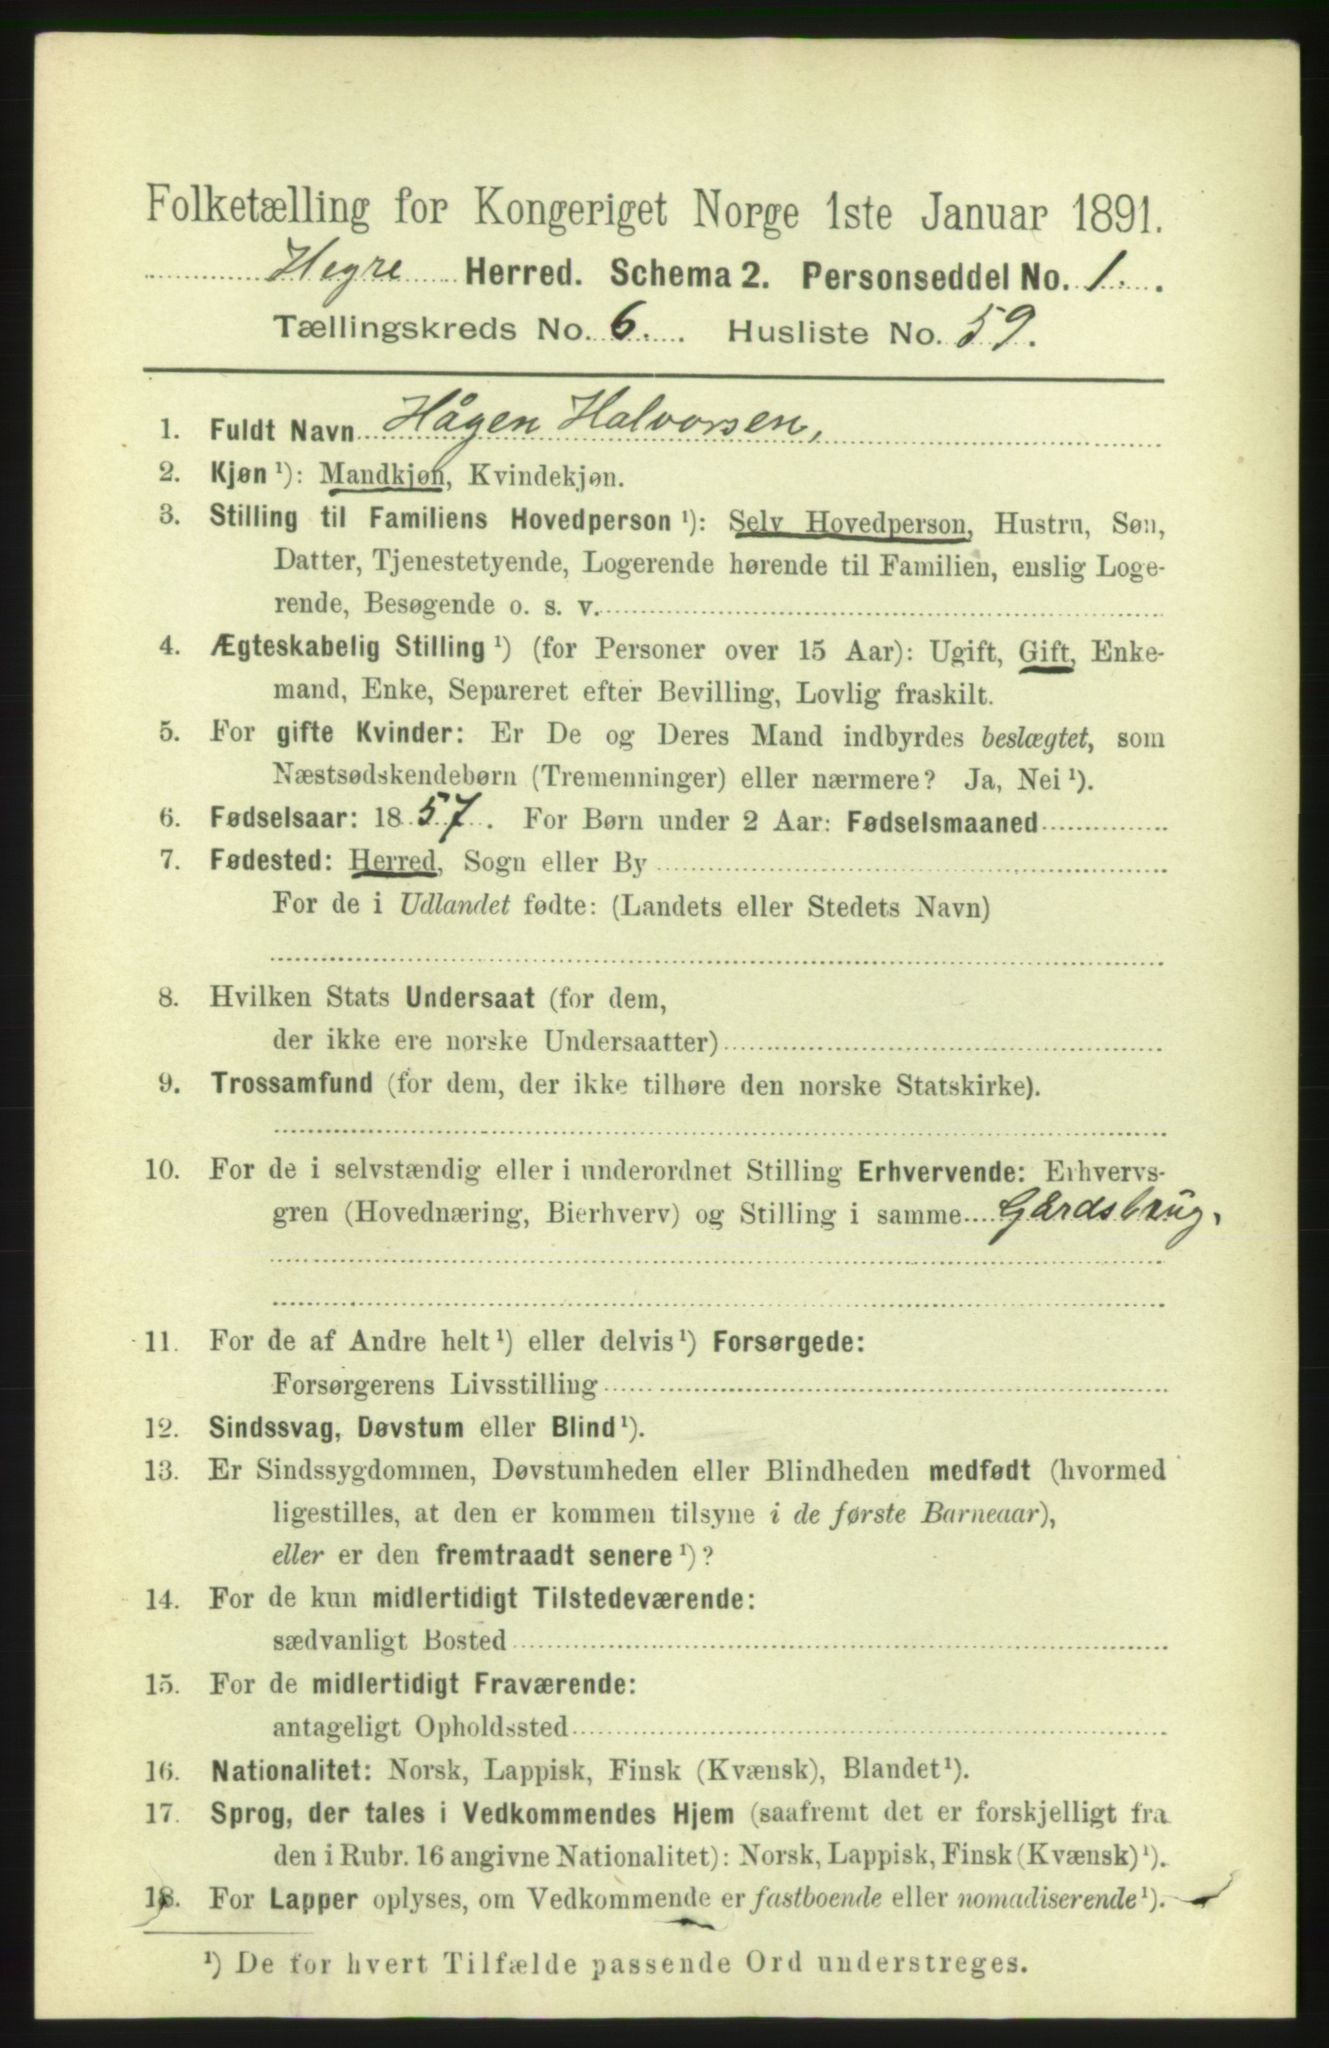 Folketælling for Kongeriget Norge 1ste Januar 1891.
Hegre Herred. Schema 2. Personseddel No. 1.
Tællingskreds No. 6. Husliste No. 59.
1. Fuldt Navn Hågen Halvorsen,
2. Kjøn ¹): Mandkjøn, Kvindekjøn.
3. Stilling til Familiens Hovedperson ¹): Selv Hovedperson, Hustru, Søn,
Datter, Tjenestetyende, Logerende hørende til Familien, enslig Loge-
rende, Besøgende o. s. v.
4. Ægteskabelig Stilling ¹) (for Personer over 15 Aar): Ugift, Gift, Enke-
mand, Enke, Separeret efter Bevilling, Lovlig fraskilt.
5. For gifte Kvinder: Er De og Deres Mand indbyrdes beslægtet, som
Næstsødskendebørn (Tremenninger) eller nærmere? Ja, Nei ¹).
6. Fødselsaar: 1857. For Børn under 2 Aar: Fødselsmaaned
7. Fødested: Herred, Sogn eller By
For de i Udlandet fødte: (Landets eller Stedets Navn)
8. Hvilken Stats Undersaat (for dem,
der ikke ere norske Undersaatter)
9. Trossamfund (for dem, der ikke tilhøre den norske Statskirke).
10. For de i selvstændig eller i underordnet Stilling Erhvervende: Erhvervs-
gren (Hovednæring, Bierhverv) og Stilling i samme Gardsbrug,
11. For de af Andre helt ¹) eller delvis ¹) Forsørgede:
Forsørgerens Livsstilling
12. Sindssvag, Døvstum eller Blind ¹).
13. Er Sindssygdommen, Døvstumheden eller Blindheden medfødt (hvormed
ligestilles, at den er kommen tilsyne i de første Barneaar),
eller er den fremtraadt senere ¹)?
14. For de kun midlertidigt Tilstedeværende:
sædvanligt Bosted
15. For de midlertidigt Fraværende:
antageligt Opholdssted
16. Nationalitet: Norsk, Lappisk, Finsk (Kvænsk), Blandet ¹).
17. Sprog, der tales i Vedkommendes Hjem (saafremt det er forskjelligt fra
den i Rubr. 16 angivne Nationalitet): Norsk, Lappisk, Finsk (Kvænsk) ¹).
18. For Lapper oplyses, om Vedkommende er fastboende eller nomadiserende ¹).
¹) De for hvert Tilfælde passende Ord understreges.